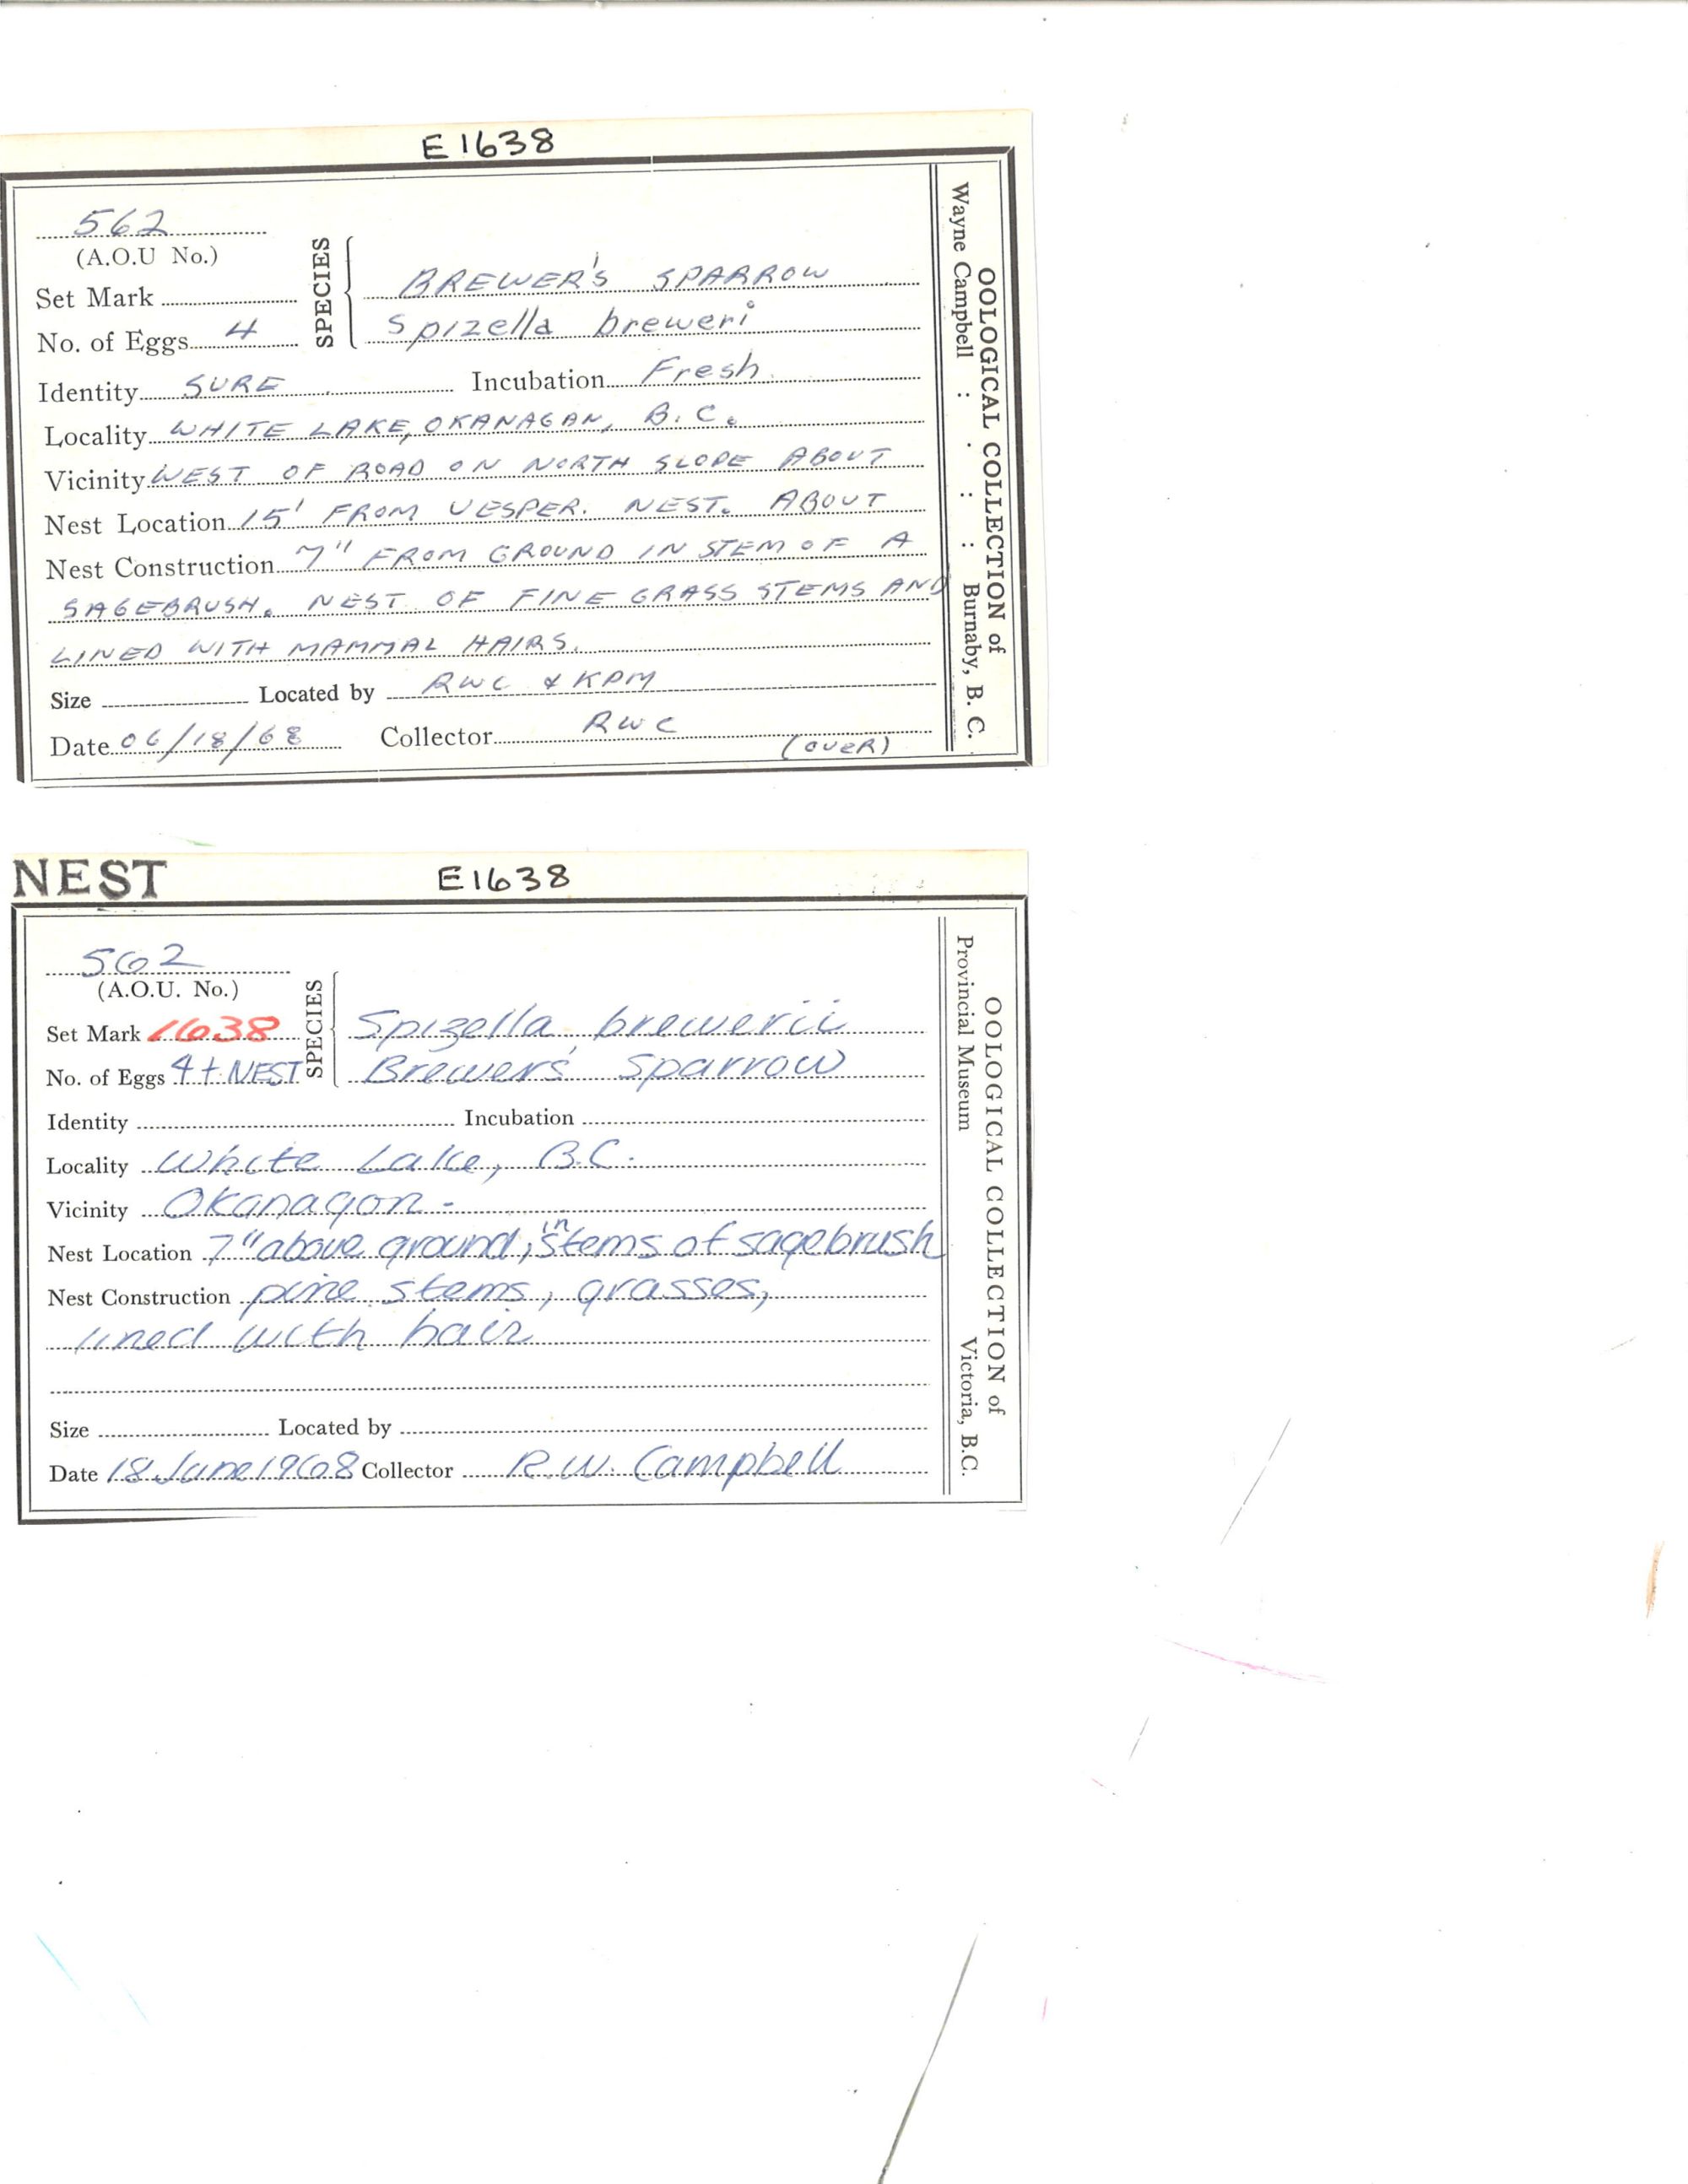 E1638
562
(A.O.U No.)
Set Mark
No. of Eggs 4
SPECIES
BREWER'S SPARROW
Spizella breweri
Identity SURE Incubation Fresh
Locality WHITE LAKE, OKANAGAN, B.C.
Vicinity WEST OF ROAD ON NORTH SLOPE ABOUT
Nest Location 15' FROM VESPER. NEST. ABOUT
Nest Construction 7" FROM GROUND IN STEM OF A
SAGEBRUSH. NEST OF FINE GRASS STEMS AND
LINED WITH MAMMAL HAIRS.
Size Located by RWC & KPM
Date 06/18/68 Collector RWC
(OVER)
OOLOGICAL COLLECTION of
Wayne Campbell : : : Burnaby, B. C.
NEST E1638
562
(A.O.U. No.)
Set Mark 1638
No. of Eggs 4 + NEST
SPECIES
Spizella brewerii
Brewer's Sparrow
Identity Incubation
Locality White Lake, B.C.
Vicinity Okanagon -
Nest Location 7" above ground, in stems of sagebrush
Nest Construction pine stems, grasses,
lined with hair
Size Located by
Date 18 June 1968 Collector R.W. Campbell
OOLOGICAL COLLECTION of
Provincial Museum Victoria, B.C.